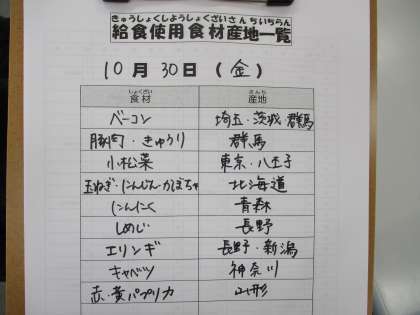 きゅうしょくしようしょくざいさんちいちらん
給食使用食材産地一覧
10月30日(金)
しょくざい さんち
食材 産地
ベーコン 埼玉・茨城・群馬
豚肉・きゅうり 群馬
小松菜 東京・八王子
玉ねぎ・にんじん・かぼちゃ 北海道
にんにく 青森
しめじ 長野
エリンギ 長野・新潟
キャベツ 神奈川
赤・黄パプリカ 山形